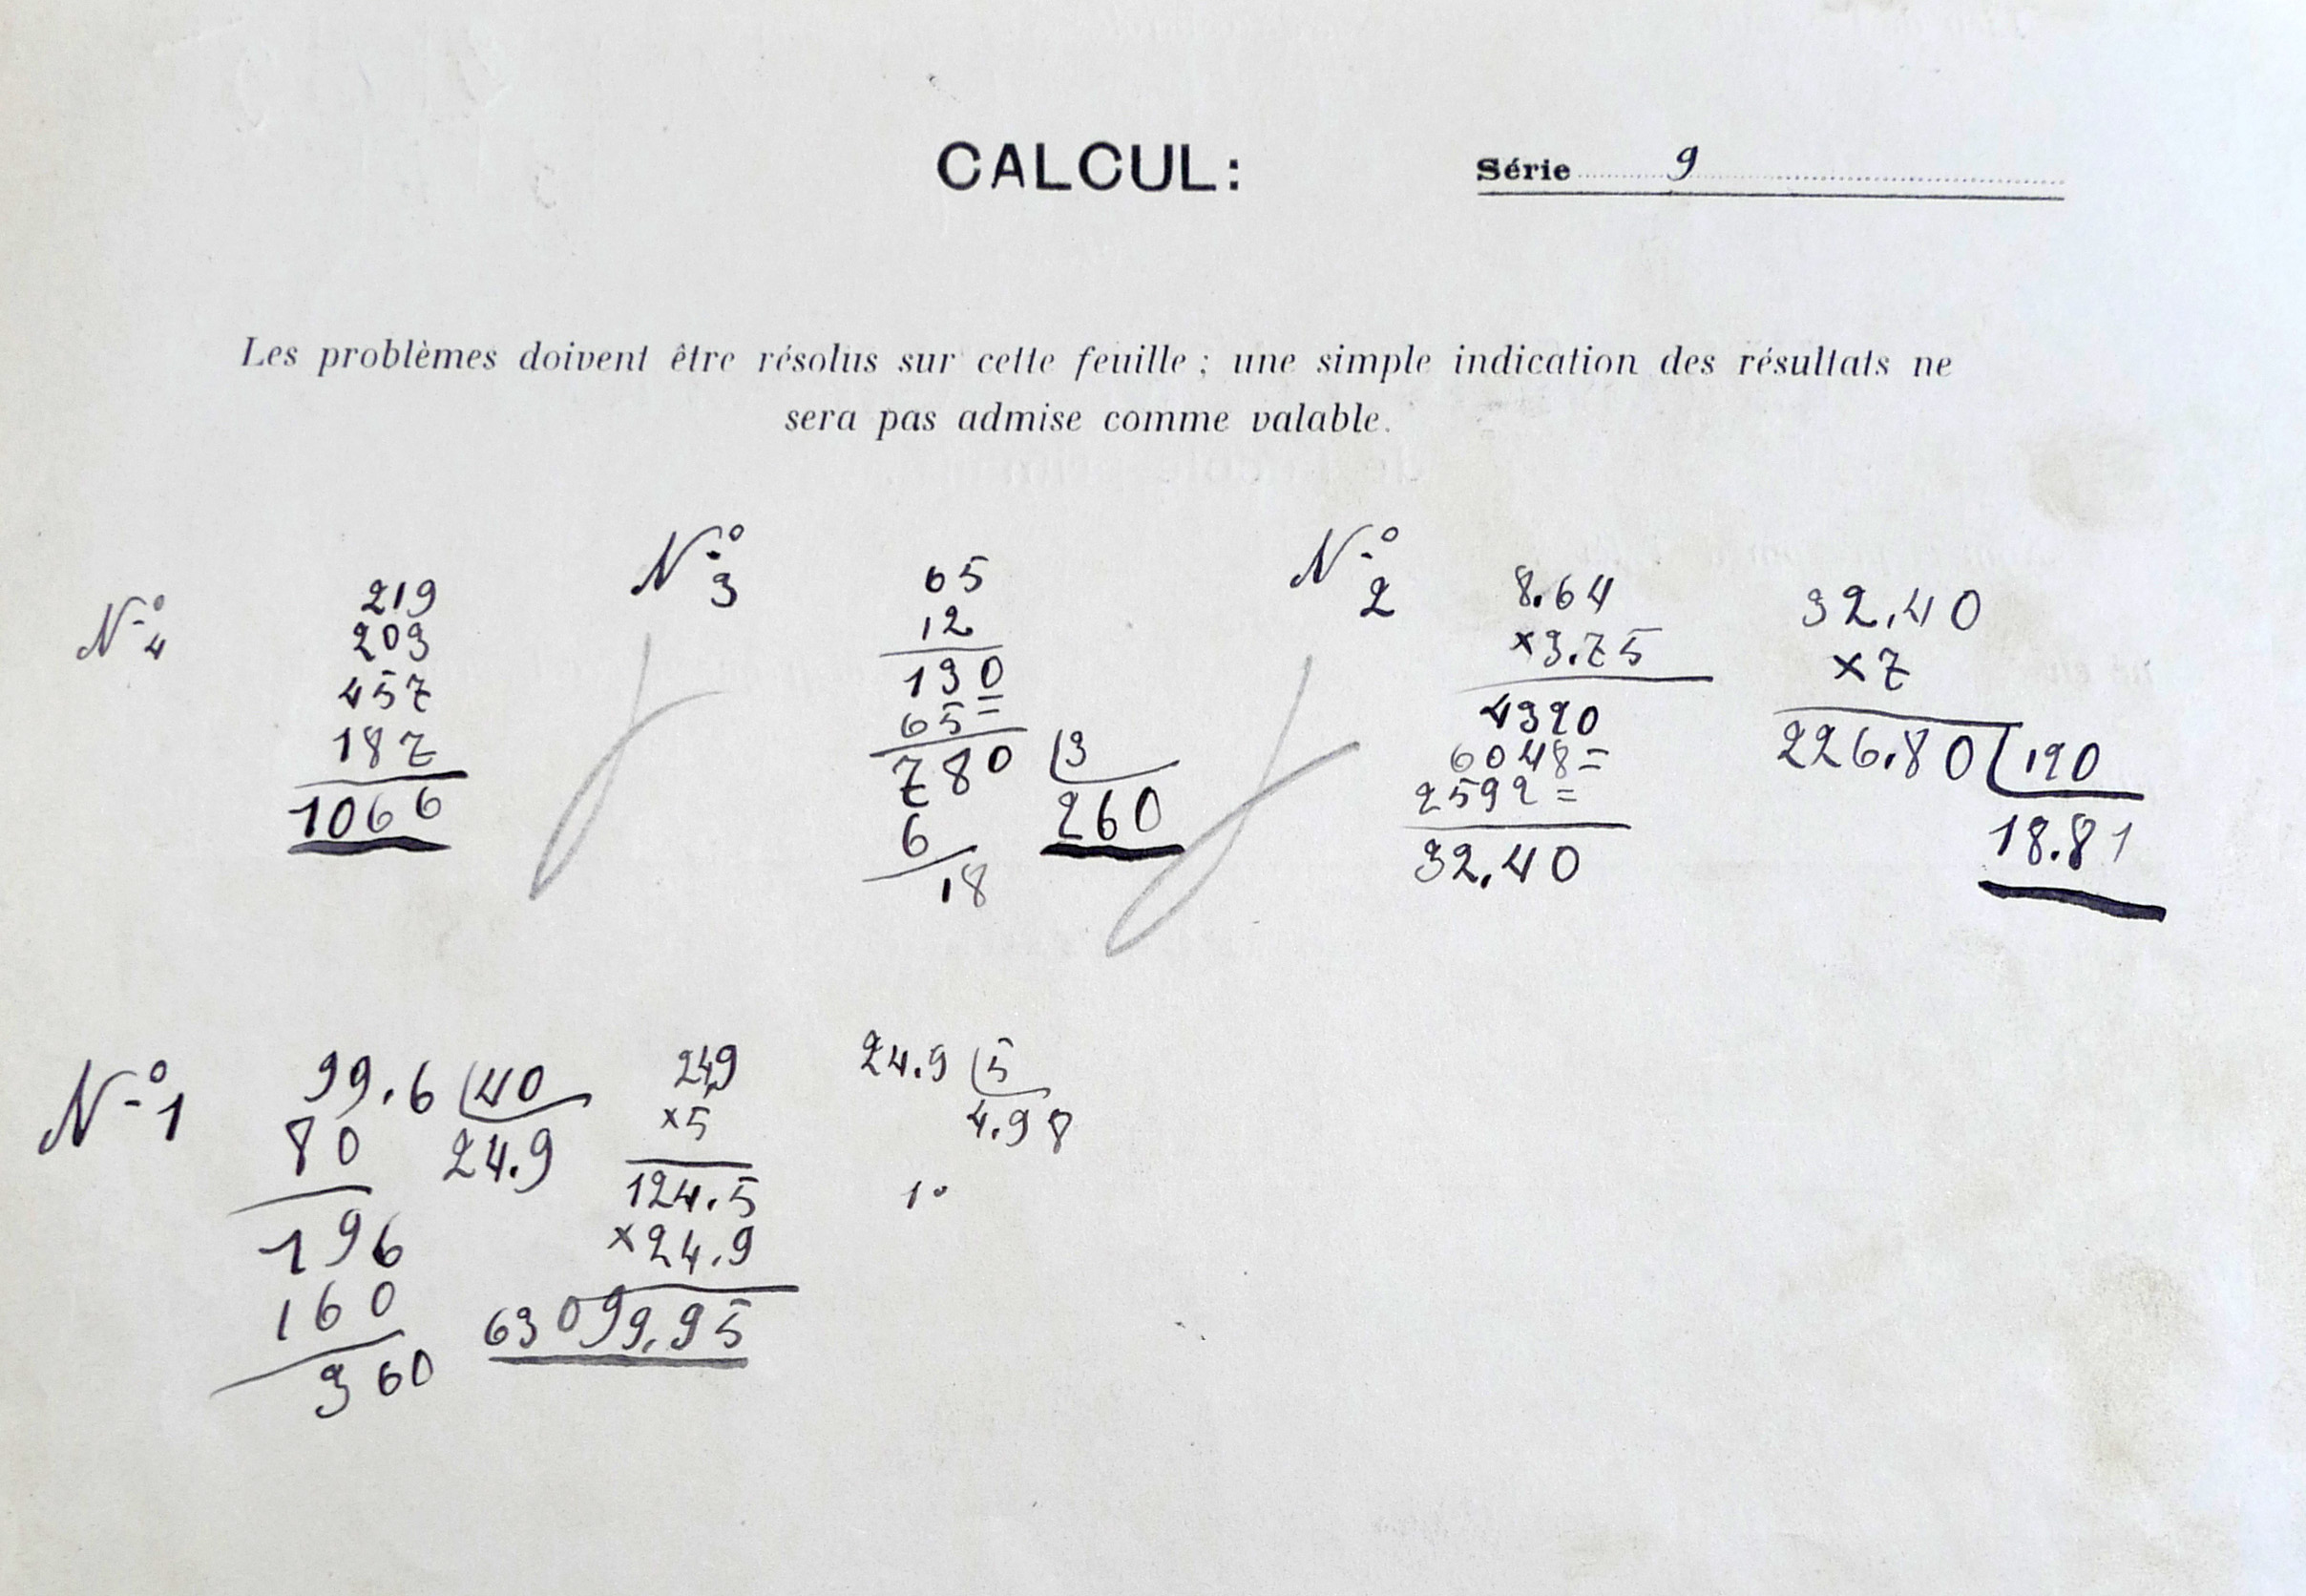 CALCUL:
Série 9
Les problèmes doivent être résolus sur cette feuille ; une simple indication des résultats ne
sera pas admise comme valable.
N° 4
219
203
457
187
1066
N° 3
65
12
130
65=
780 3
6 260
18
N° 2
8.64
×3.75
4320
6048=
2592=
32.40
32.40
×7
226.80 120
18.81
N° 1
99.6 40
80 24.9
196
160
360
24.9
×5
124.5
×24.9
63099.95
24.9 5
4.98
1°